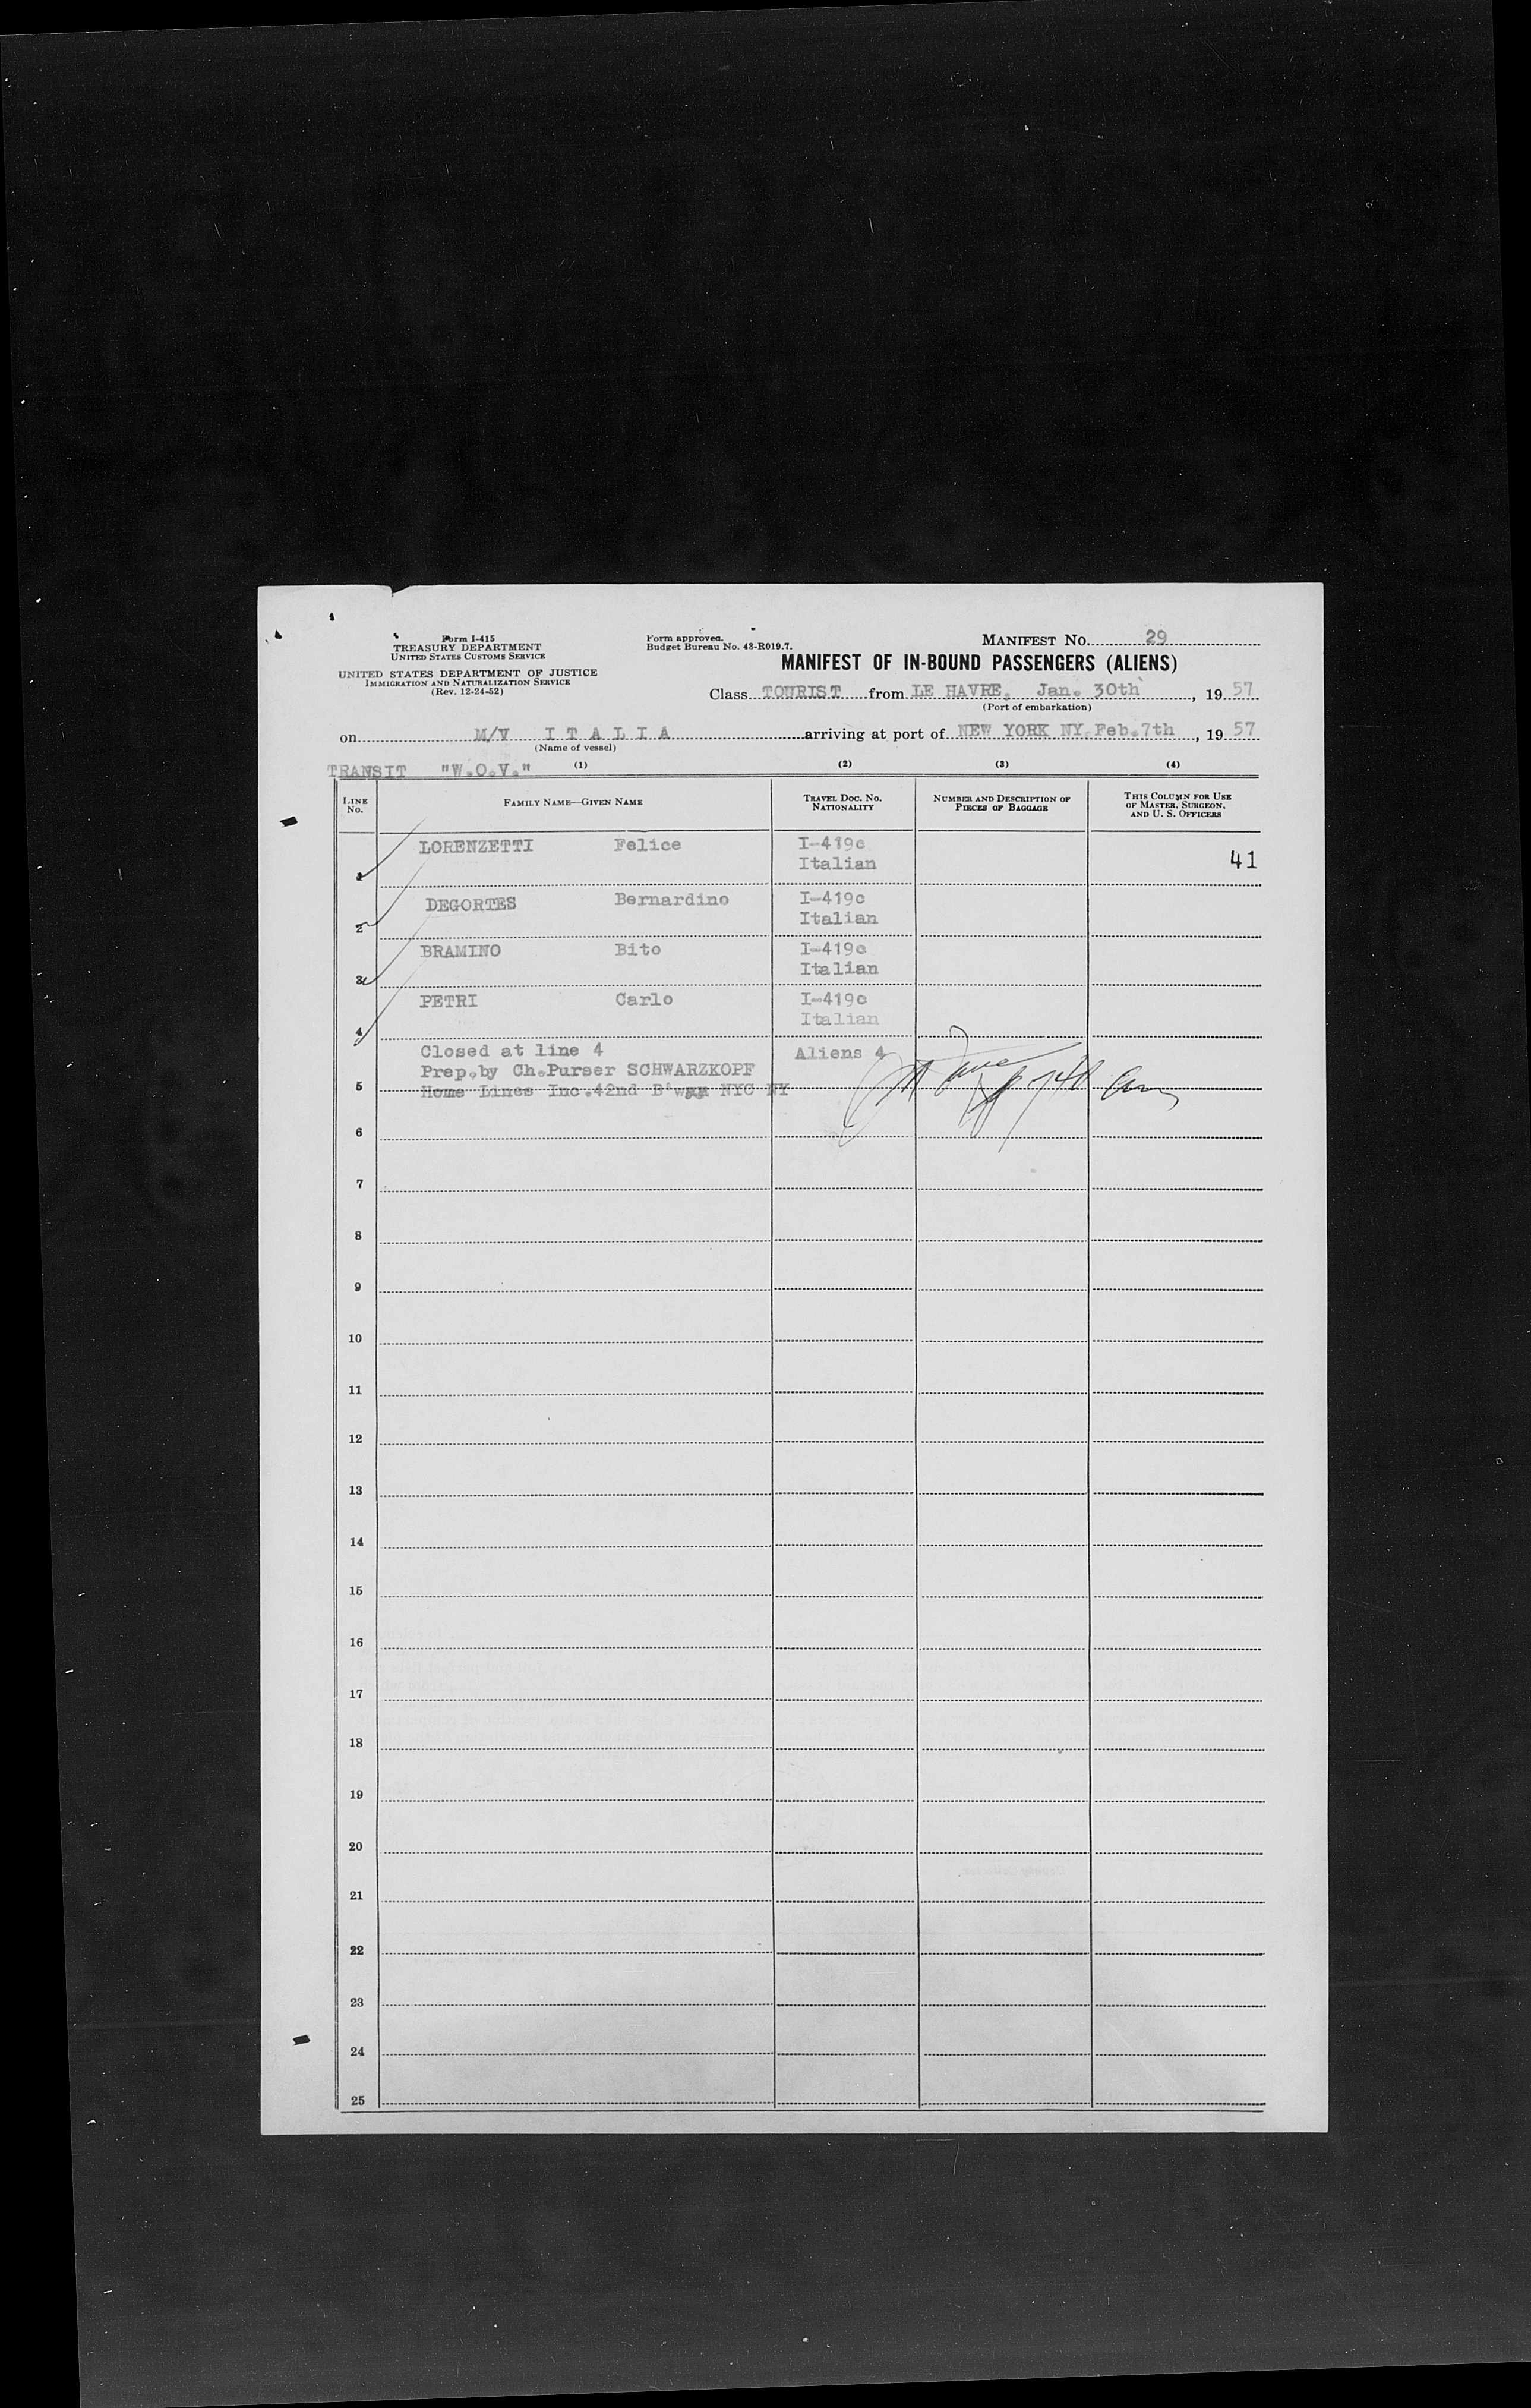 Form I-415
TREASURY DEPARTMENT
UNITED STATES CUSTOMS SERVICE
UNITED STATES DEPARTMENT OF JUSTICE
IMMIGRATION AND NATURALIZATION SERVICE
(Rev. 12-24-52)
Form approved.
Budget Bureau No. 43-R019.7.
MANIFEST NO. 29
MANIFEST OF IN-BOUND PASSENGERS (ALIENS)
Class TOURIST from LE HAVRE, Jan. 30th, 19 57
(Port of embarkation)
on M/V I T A L I A arriving at port of NEW YORK NY. Feb.7th, 19 57
(Name of vessel)
TRANSIT "W.O.V." (1) (2) (3) (4)
LINE NO. FAMILY NAME—GIVEN NAME TRAVEL DOC. NO. NATIONALITY NUMBER AND DESCRIPTION OF PIECES OF BAGGAGE THIS COLUMN FOR USE OF MASTER, SURGEON, AND U. S. OFFICERS
1 LORENZETTI Felice I-419c Italian 41
2 DEGORTES Bernardino I-419c Italian
3 BRAMINO Bito I-419c Italian
4 PETRI Carlo I-419c Italian
Closed at line 4 Aliens 4
Prep.by Ch.Purser SCHWARZKOPF
5 Home Lines Inc.42nd B'way NYC NY
6
7
8
9
10
11
12
13
14
15
16
17
18
19
20
21
22
23
24
25